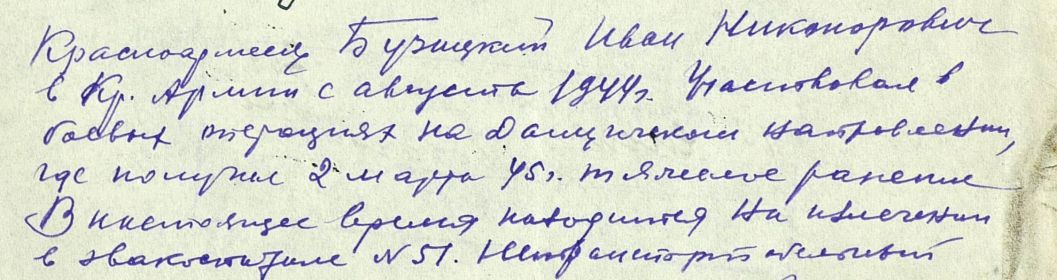 Красноармеец Бузицкий Иван Никонорович
в Кр. Армии с августа 1944г. Участвовал в
боевых операциях на Данцигском направлении,
где получил 2 марта 45г. тяжелое ранение
В настоящее время находится на излечении
в эвакогоспитале №51. Нетранспортабельный